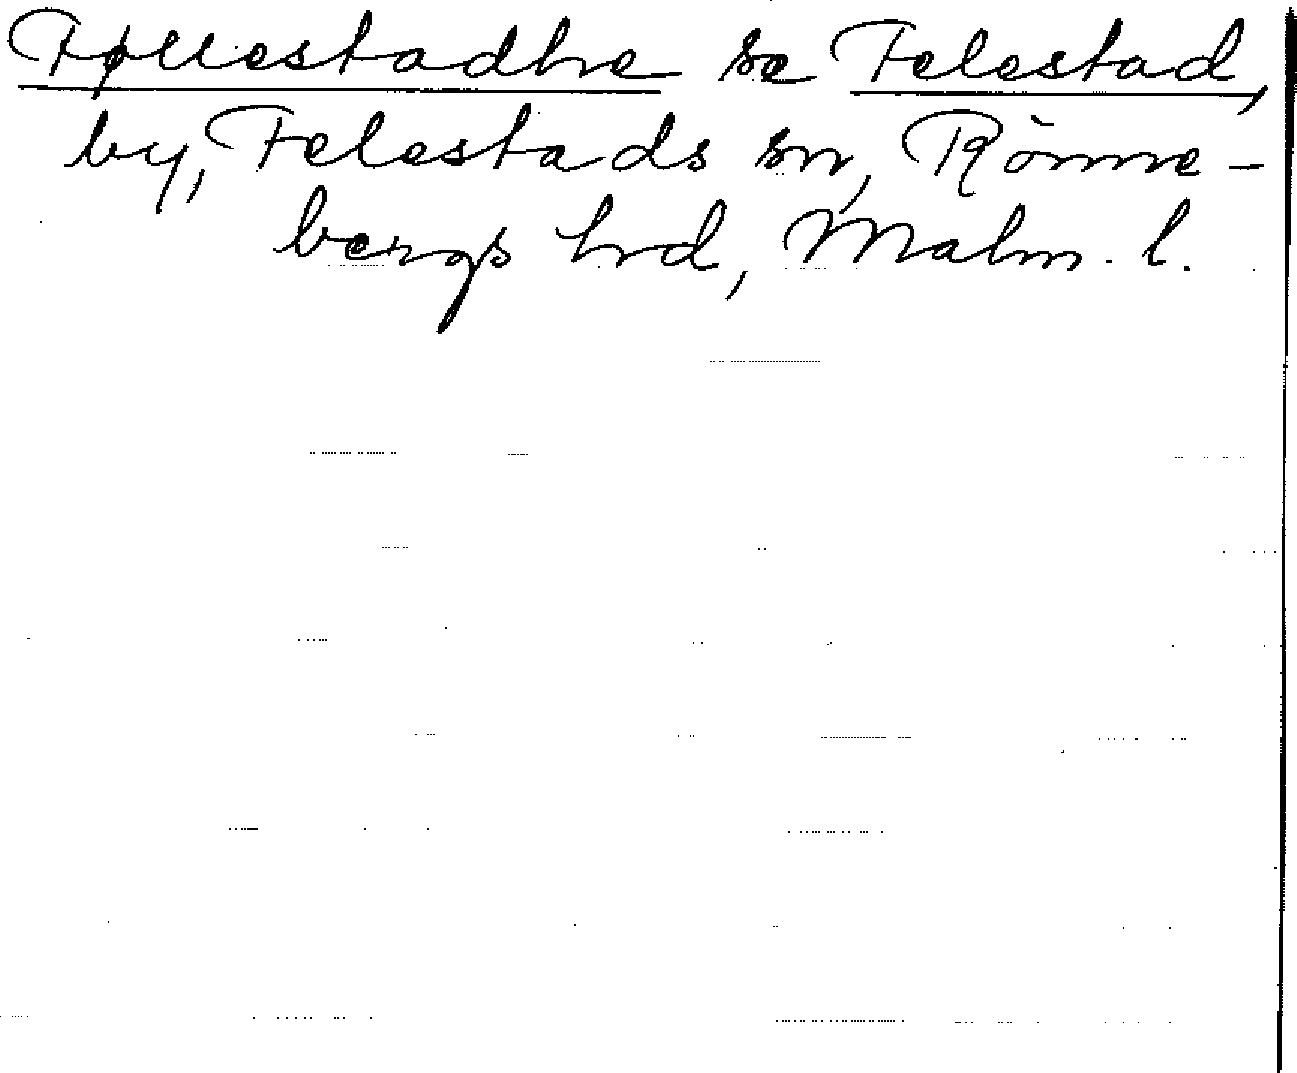 Føllestadhe se Felestad,
by, Felestads sn, Rönne-
bergs hrd, Malm. l.